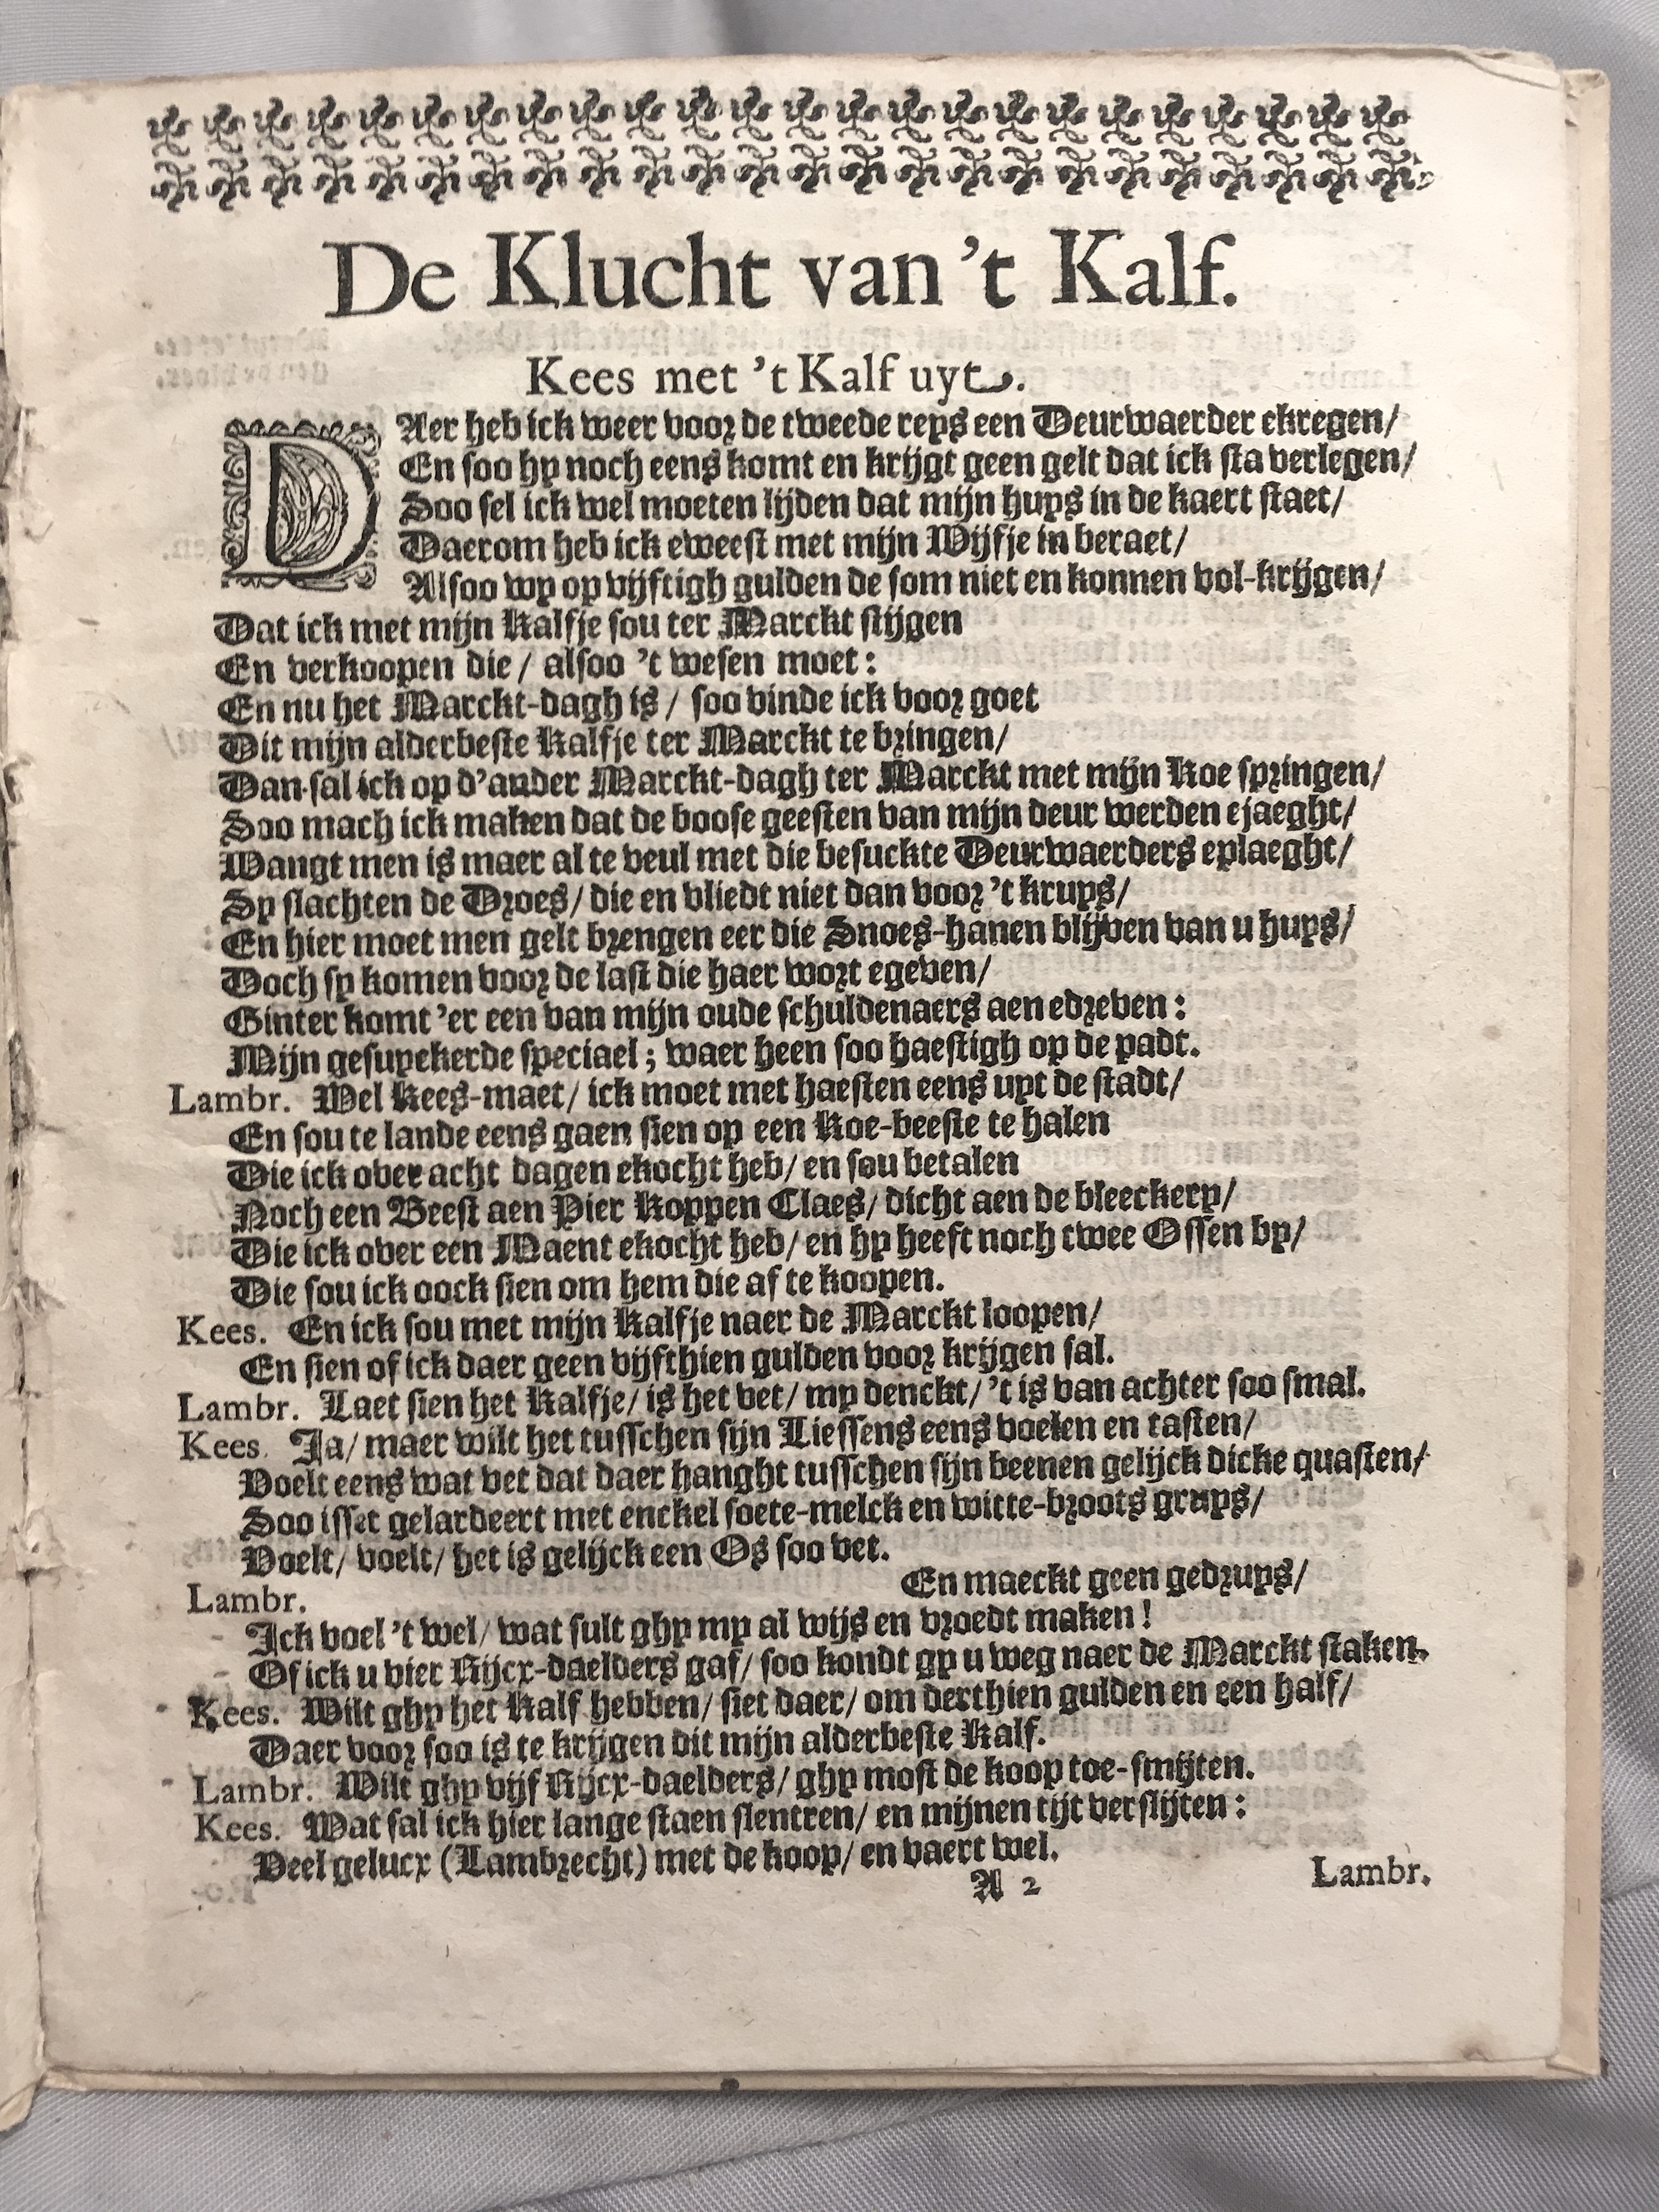 De Klucht van 't Kalf.
Kees met 't Kalf uyt.
DAer heb ick weer voor de tweede reys een Deurwaerder ekregen/
En soo hy noch eens komt en krijgt geen gelt dat ick sta verlegen/
Soo sel ick wel moeten lijden dat mijn huys in de kaert staet/
Daerom heb ick eweest met mijn Wijfje in beraet/
Alsoo wy op vijftigh gulden de som niet en konnen vol-krijgen/
Dat ick met mijn Kalfje sou ter Marckt stijgen
En verkoopen die/ alsoo 't wesen moet:
En nu het Marckt-dagh is/ soo vinde ick voor goet
Dit mijn alderbeste Kalfje ter Marckt te bringen/
Dan sal ick op d'ander Marckt-dagh ter Marckt met mijn Koe springen/
Soo mach ick maken dat de boose geesten van mijn deur werden ejaeght/
Wangt men is maer al te veul met die besuckte Deurwaerders eplaeght/
Sy slachten de Droes/ die en vliedt niet dan voor 't kruys/
En hier moet men gelt brengen eer die Snoes-hanen blijven van u huys/
Doch sy komen voor de last die haer wort egeven/
Ginter komt 'er een van mijn oude schuldenaers aen edreven:
Mijn gesuyekerde speciael; waer heen soo haestigh op de padt.
Lambr. Wel Kees-maet/ ick moet met haesten eens uyt de stadt/
En sou te lande eens gaen sien op een Koe-beeste te halen
Die ick over acht dagen ekocht heb/ en sou betalen
Noch een Beest aen Pier Koppen Claes/ dicht aen de bleeckery/
Die ick over een Maent ekocht heb/ en hy heeft noch twee Ossen by/
Die sou ick oock sien om hem die af te koopen.
Kees. En ick sou met mijn Kalfje naer de Marckt loopen/
En sien of ick daer geen vijfthien gulden voor krijgen sal.
Lambr. Laet sien het Kalfje/ is het vet/ my denckt/ 't is van achter soo smal.
Kees. Ja/ maer wilt het tusschen sijn Liessens eens voelen en tasten/
Voelt eens wat vet dat daer hanght tusschen sijn beenen gelijck dicke quasten/
Soo isset gelardeert met enckel soete-melck en witte-broots gruys/
Voelt/ voelt/ het is gelijck een Os soo vet.
Lambr. En maeckt geen gedruys/
Ick voel 't wel/ wat sult ghy my al wijs en vroedt maken!
Of ick u vier Rijcx-daelders gaf/ soo kondt gy u weg naer de Marckt staken.
Kees. Wilt ghy het Kalf hebben/ siet daer/ om derthien gulden en een half/
Daer voor soo is te krijgen dit mijn alderbeste Kalf.
Lambr. Wilt ghy vijf Rijcx-daelders/ ghy most de koop toe-smijten.
Kees. Wat sal ick hier lange staen slentren/ en mijnen tijt verslijten:
Veel gelucx (Lambrecht) met de koop/ en vaert wel.
A 2 Lambr.